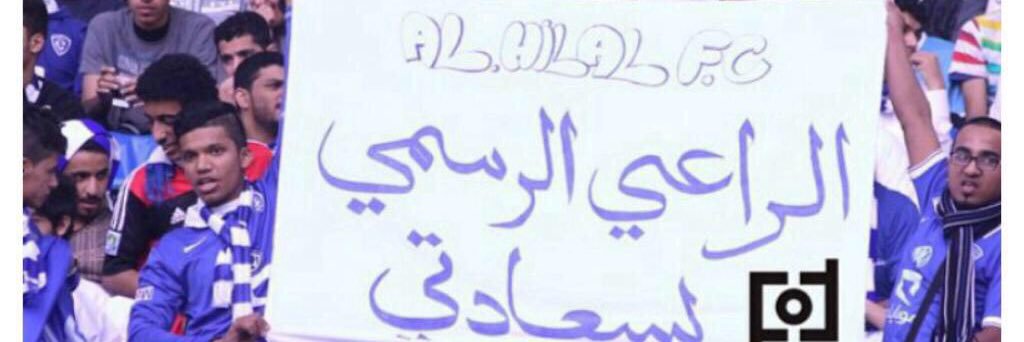 AL.HILAL F.C
الراعي الرسمي
لسعادتي